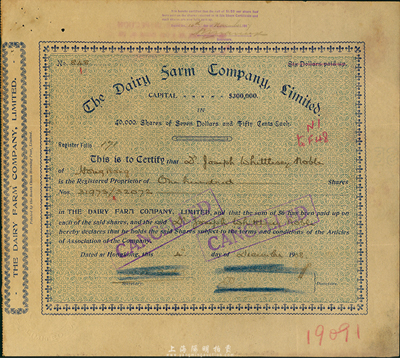 No. 845
Six Dollars paid up.
The Dairy Farm Company, Limited.
CAPITAL $300,000.
IN
40,000. Shares of Seven Dollars and Fifty Cents Each.
Register Folio 171
This is to Certify that Dr Joseph Whittlesey Noble
of Hongkong
is the Registered Proprietor of One hundred Shares
Nos. 31973/32072
in THE DAIRY FARM COMPANY, LIMITED, and that the sum of $6 has been paid up on
each of the said shares, and the said Dr Joseph Whitt
hereby declares that he holds the said Shares subject to the terms and conditions of the Articles
of Association of the Company.
Dated at Hongkong, this day of December 19
CANCELLED
CANCELLED
THE DAIRY FARM COMPANY, LIMITED.
19091
上海陽明拍賣